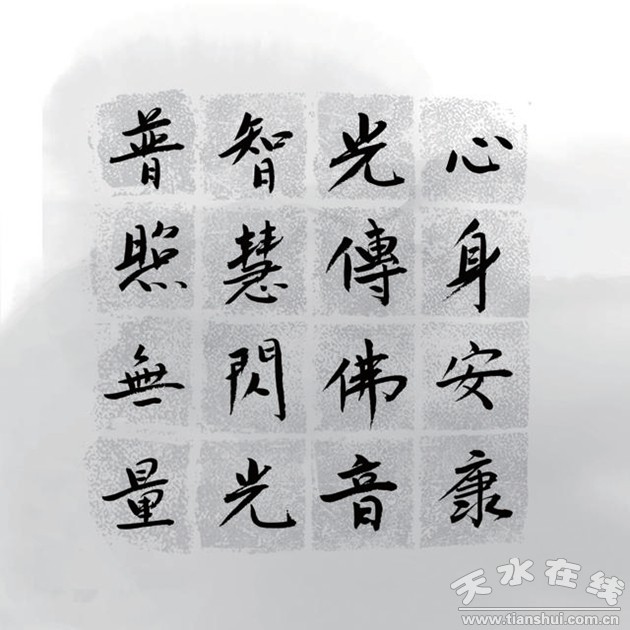 心身安康
光傳佛音
智慧閃光
普照無量
天水在线
www.tianshui.com.cn